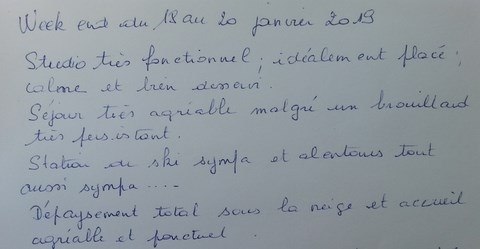 Week end du 18 au 20 janvier 2019
Studio très fonctionnel ; idéalement placé ;
calme et bien desservi.
Séjour très agréable malgré un brouillard
très persistant.
Station de ski sympa et alentours tout
aussi sympa ....
Dépaysement total sous la neige et accueil
agréable et ponctuel.